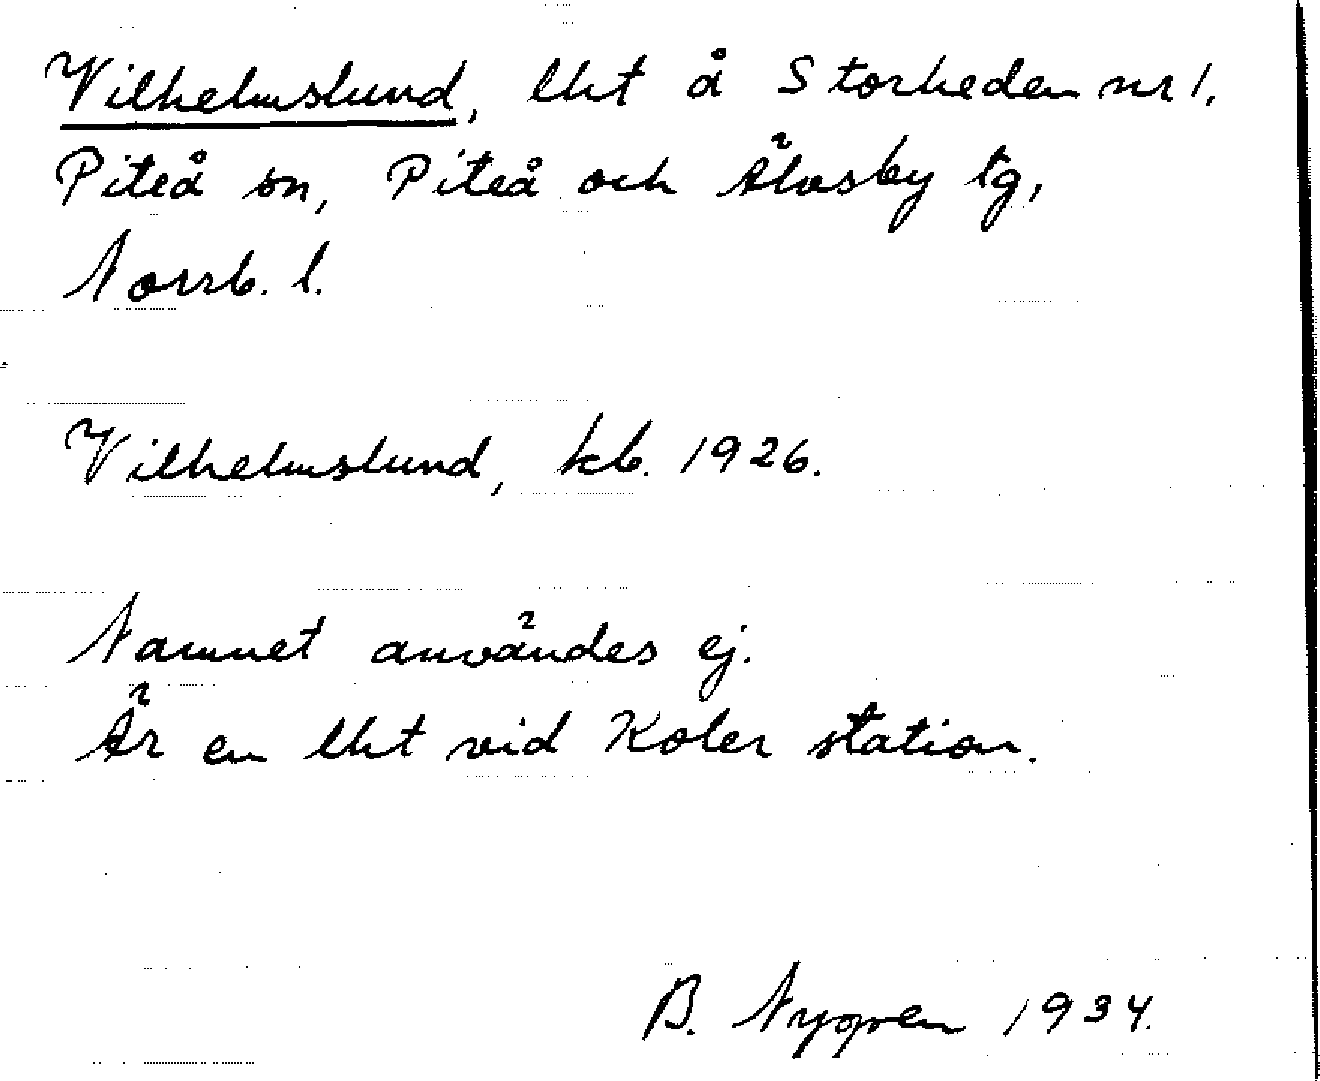 Vilhelmslund, lht å Storheden nr 1.
Piteå sn, Piteå och Älvsby tg,
Norrb. l.
Vilhelmslund, kb. 1926.
Namnet användes ej.
Är en lht vid Koler station.
B. Nygren 1934.